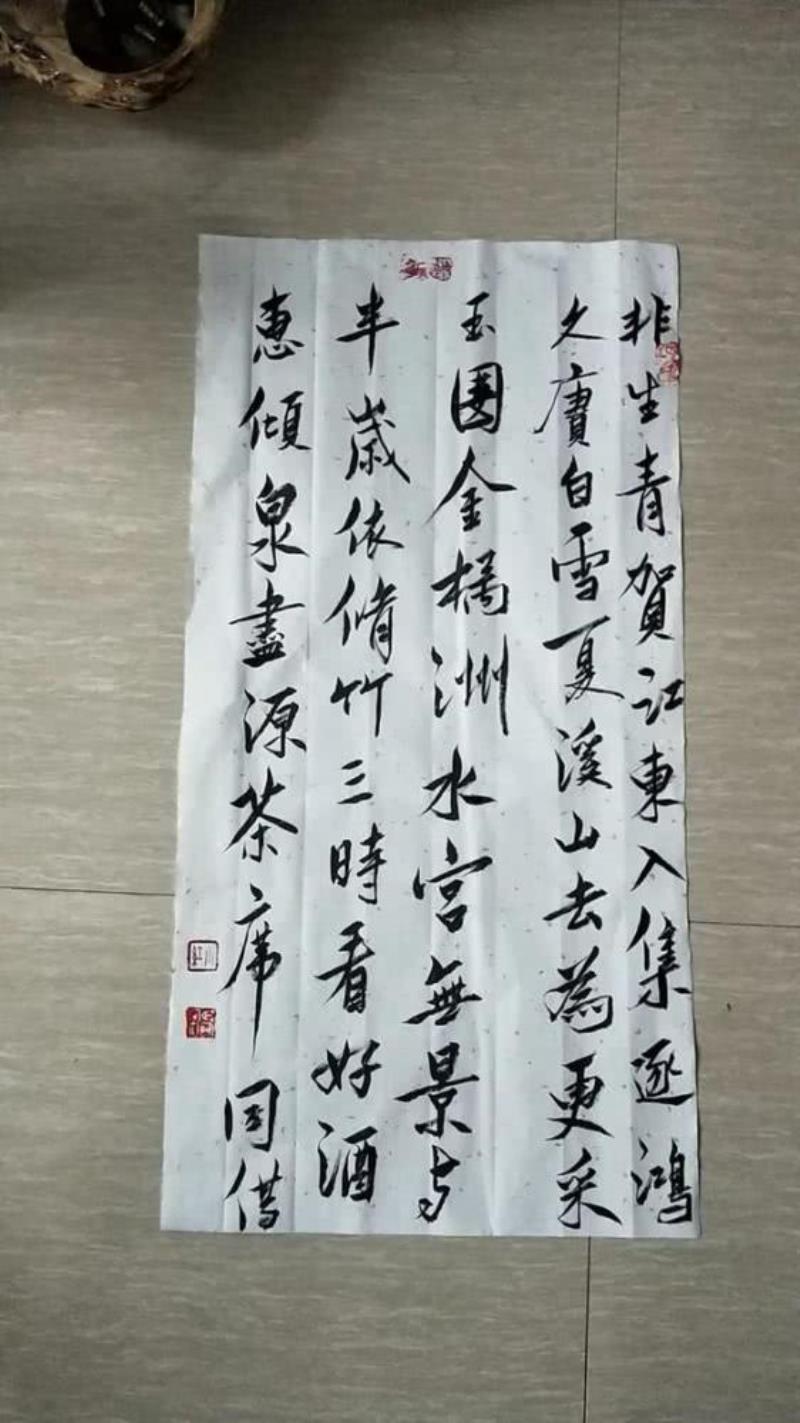 非生青賀江東入集逐鴻
久賡白雪夏溪山去為更采
玉園金橘洲水宮無景与
半歲依脩竹三時看好酒
惠傾泉盡源茶席同借